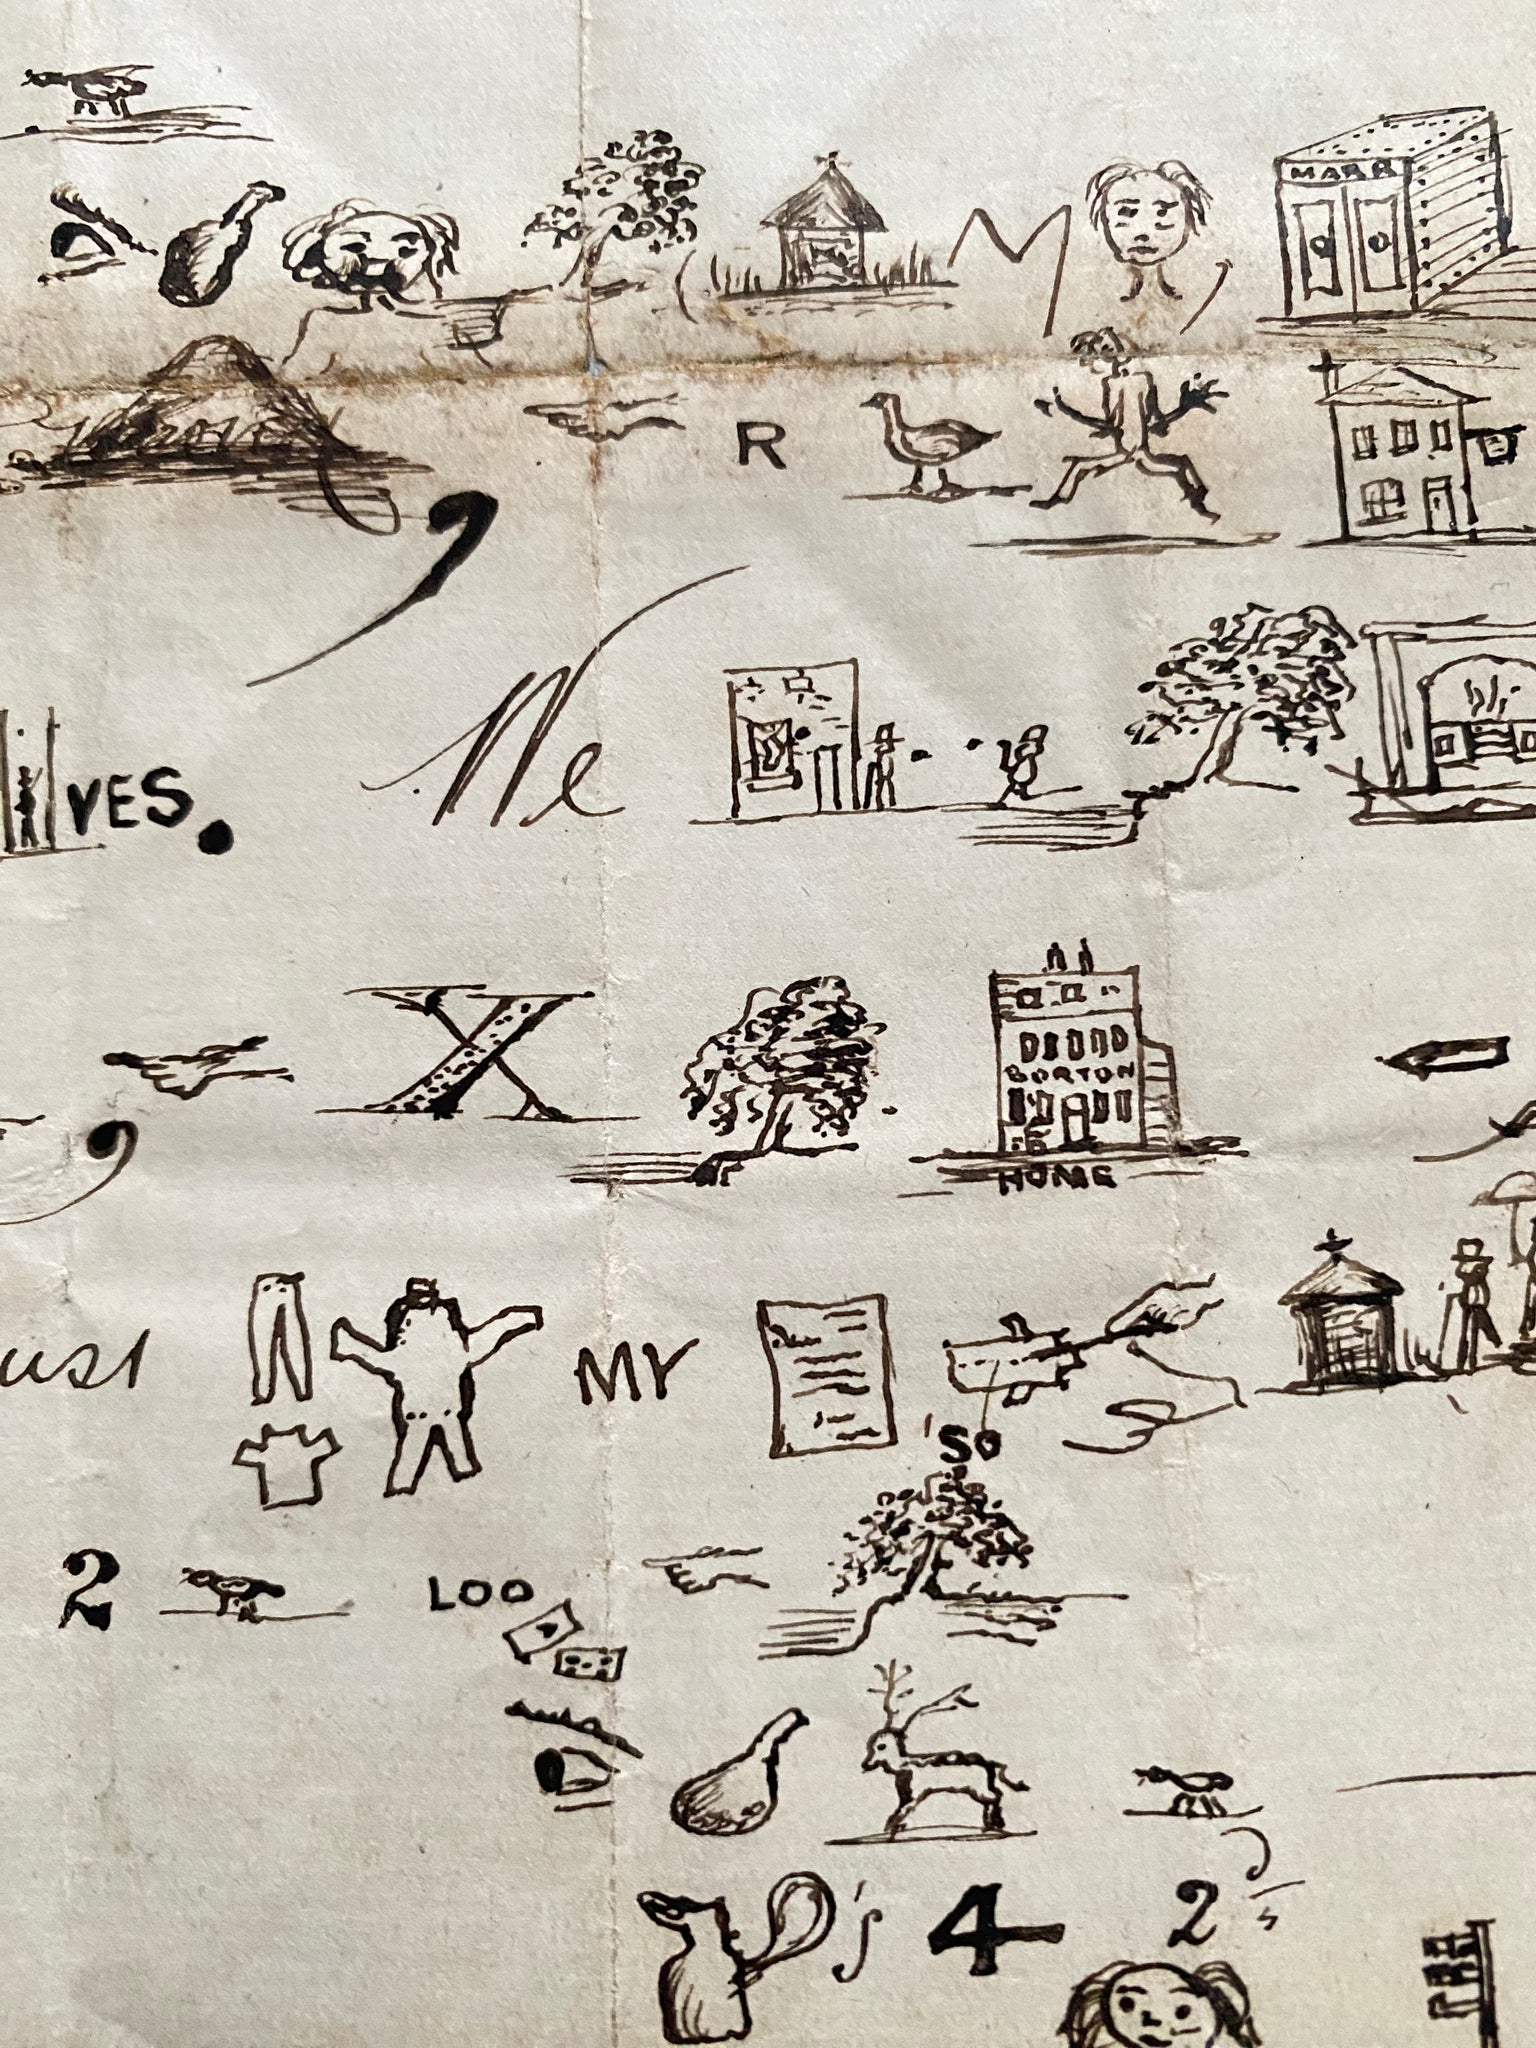 M MARR
R
VES. We
BORTON
HOME
ust MY
'SO
2 LOO
's 4 2